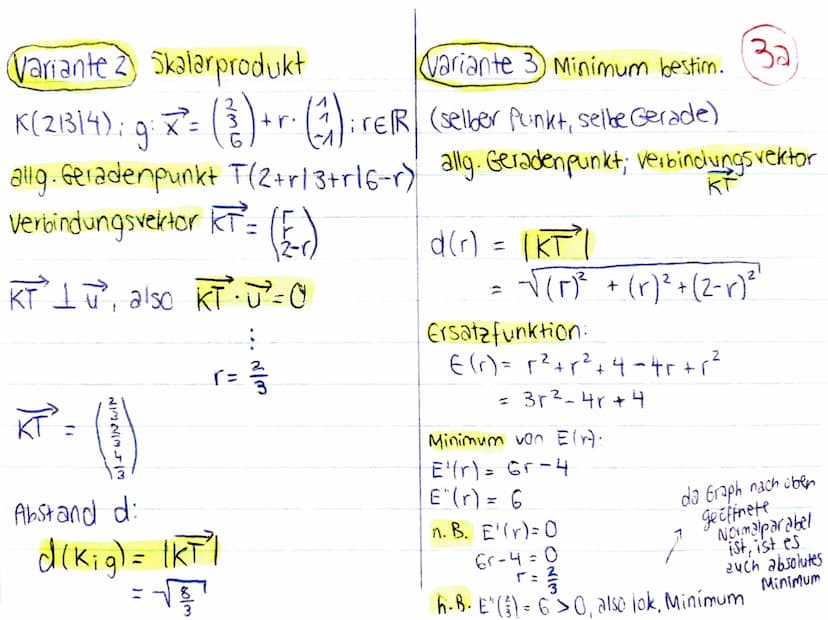 Variante 2 Skalarprodukt
K(2|3|4); g: x⃗ = (2 3 6) + r · (1 1 -1); r∈ℝ
allg. Geradenpunkt T(2+r|3+r|6-r)
Verbindungsvektor K͞T⃗ = (r r 2-r)
K͞T⃗ ⊥ u⃗, also K͞T⃗ · u⃗ = 0
⋮
r = 2/3
K͞T⃗ = (2/3 2/3 4/3)
Abstand d:
d(K;g) = |K͞T⃗|
= √(8/3)
Variante 3 Minimum bestim.
3a
(selber Punkt, selbe Gerade)
allg. Geradenpunkt; Verbindungsvektor
K͞T⃗
d(r) = |K͞T⃗|
= √((r)² + (r)² + (2-r)²)
Ersatzfunktion:
E(r) = r² + r² + 4 - 4r + r²
= 3r² - 4r + 4
Minimum von E(r):
E'(r) = 6r - 4
E''(r) = 6
n.B. E'(r) = 0
6r - 4 = 0
r = 2/3
h.B. E''(2/3) = 6 > 0, also lok. Minimum
da Graph nach oben
geöffnete
Normalparabel
ist, ist es
auch absolutes
Minimum